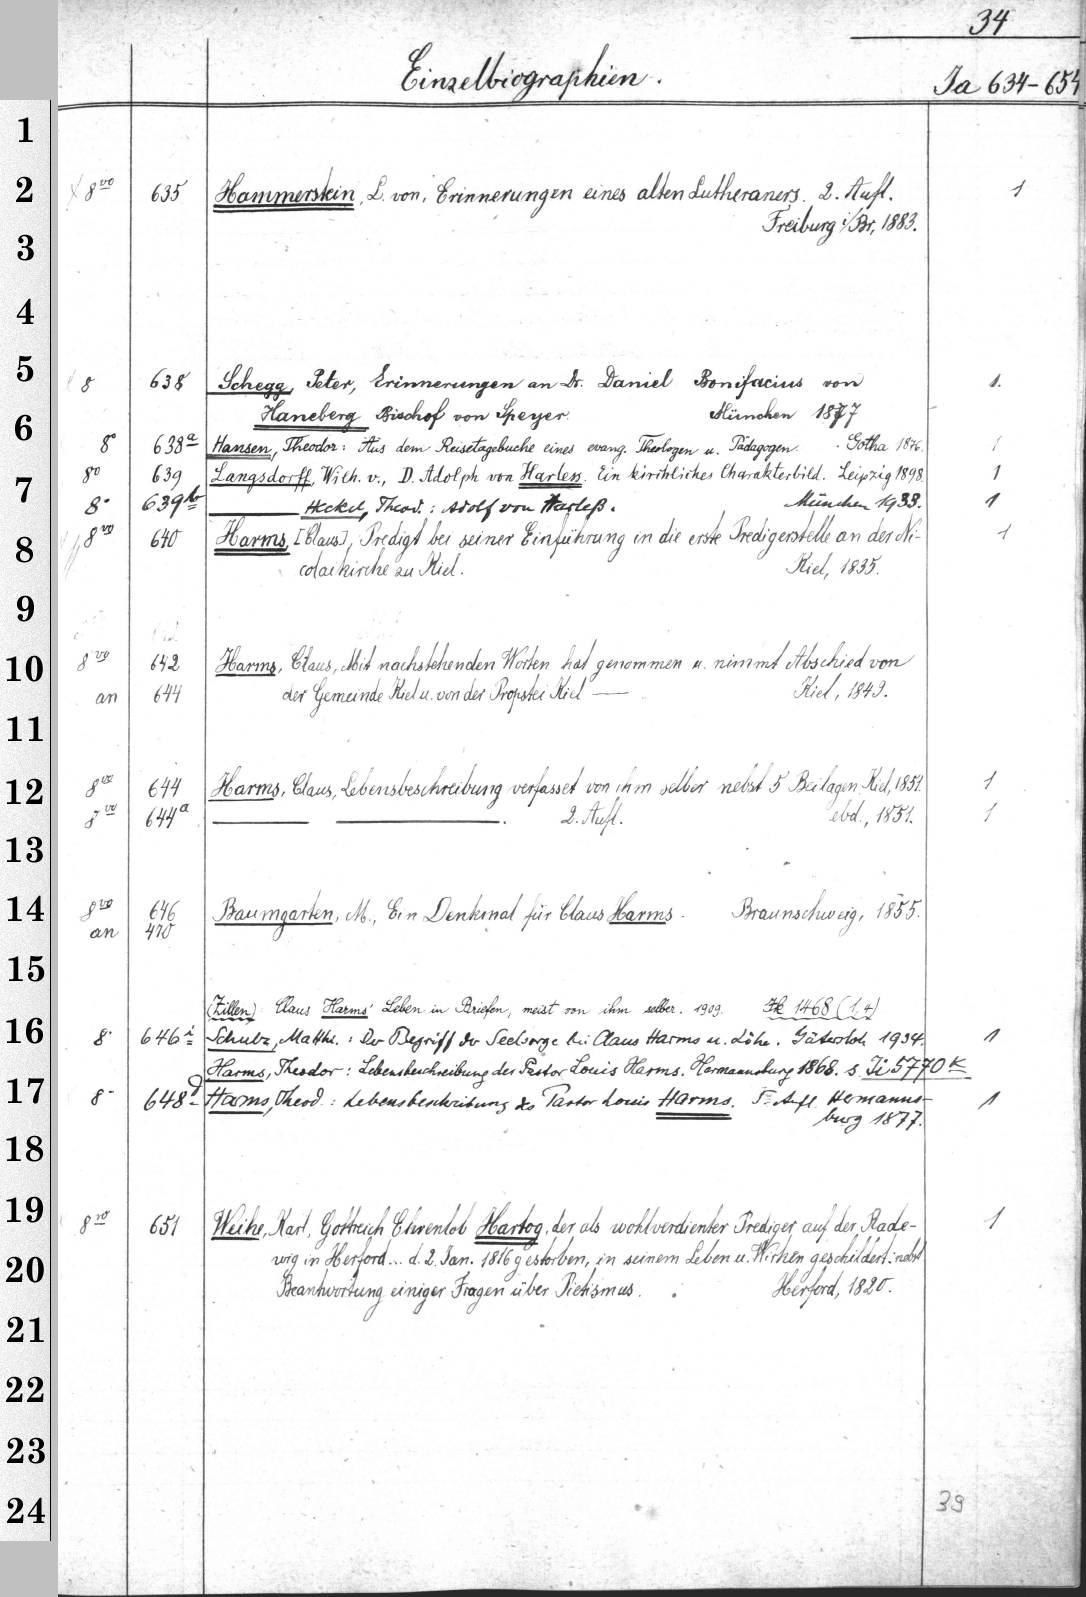 34
Einzelbiographien.
Ia 634-654
1
2
8vo 635 Hammerstein, L. von, Erinnerungen eines alten Lutheraners. 2. Aufl. 1
Freiburg i/Br, 1883.
3
4
5
8 638 Schegg, Peter, Erinnerungen an Dr. Daniel Bonifacius von 1.
6
Haneberg Bischof von Speyer. München 1877
8° 638a Hansen, Theodor: Aus dem Reisetagebuche eines evang. Theologen u. Pädagogen. Gotha 1876. 1
7
8° 639 Langsdorff, Wilh. v., D. Adolph von Harless. Ein kirchliches Charakterbild. Leipzig 1898. 1
8° 639b Heckel, Theod.: Adolf von Harleß. München 1933. 1
8
8vo 640 Harms, [Claus], Predigt bei seiner Einführung in die erste Predigerstelle an der Ni- 1
colaikirche zu Kiel. Kiel, 1835.
9
10
8vo 642 Harms, Claus, Mit nachstehenden Worten hat genommen u. nimmt Abschied von
an 644 der Gemeinde Kiel u. von der Propstei Kiel — Kiel, 1849.
11
12
8vo 644 Harms, Claus, Lebensbeschreibung verfasset von ihm selber nebst 5 Beilagen. Kiel, 1851. 1
8vo 644a — —. 2. Aufl. ebd., 1851. 1
13
14
8vo 646 Baumgarten, M., Ein Denkmal für Claus Harms. Braunschweig, 1855.
an 470
15
(Zillen) Claus Harms' Leben in Briefen, meist von ihm selber. 1909. Ik 1468 (1,4)
16
8° 646i Schulz, Matth.: Der Begriff der Seelsorge bei Claus Harms u. Löhe. Gütersloh 1934. 1
Harms, Theodor: Lebensbeschreibung des Pastor Louis Harms. Hermannsburg 1868. s. Ii 5770k
17
8° 648d Harms, Theod.: Lebensbeschreibung des Pastor Louis Harms. 5te Aufl. Hermanns- 1
burg 1877.
18
19
8vo 651 Weihe, Karl, Gottreich Ehrenlob Hartog, der als wohlverdienter Prediger auf der Rade- 1
20
wig in Herford... d. 2. Jan. 1816 gestorben, in seinem Leben u. Wirken geschildert: nebst
Beantwortung einiger Fragen über Pietismus. Herford, 1820.
21
22
23
24
39